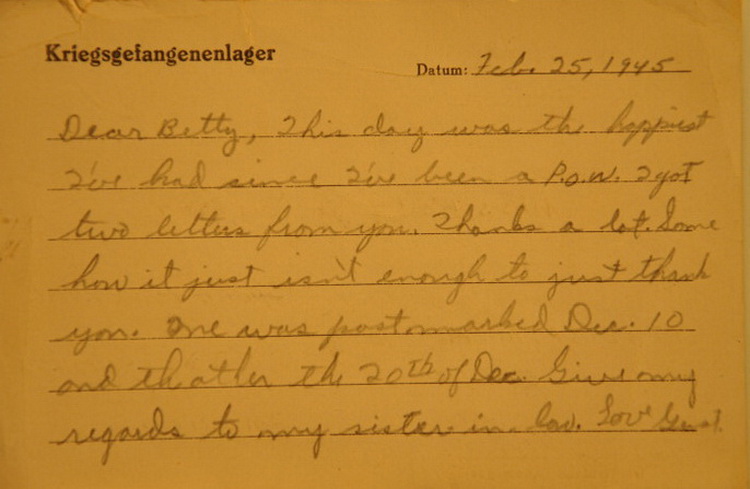 Kriegsgefangenenlager
Datum: Feb. 25, 1945
Dear Betty, This day was the happiest
I've had since I've been a P.O.W. I got
two letters from you. Thanks a lot. Some
how it just isn't enough to just thank
you. One was postmarked Dec. 10
and the other the 20th of Dec. Give my
regards to my sister in law. Love